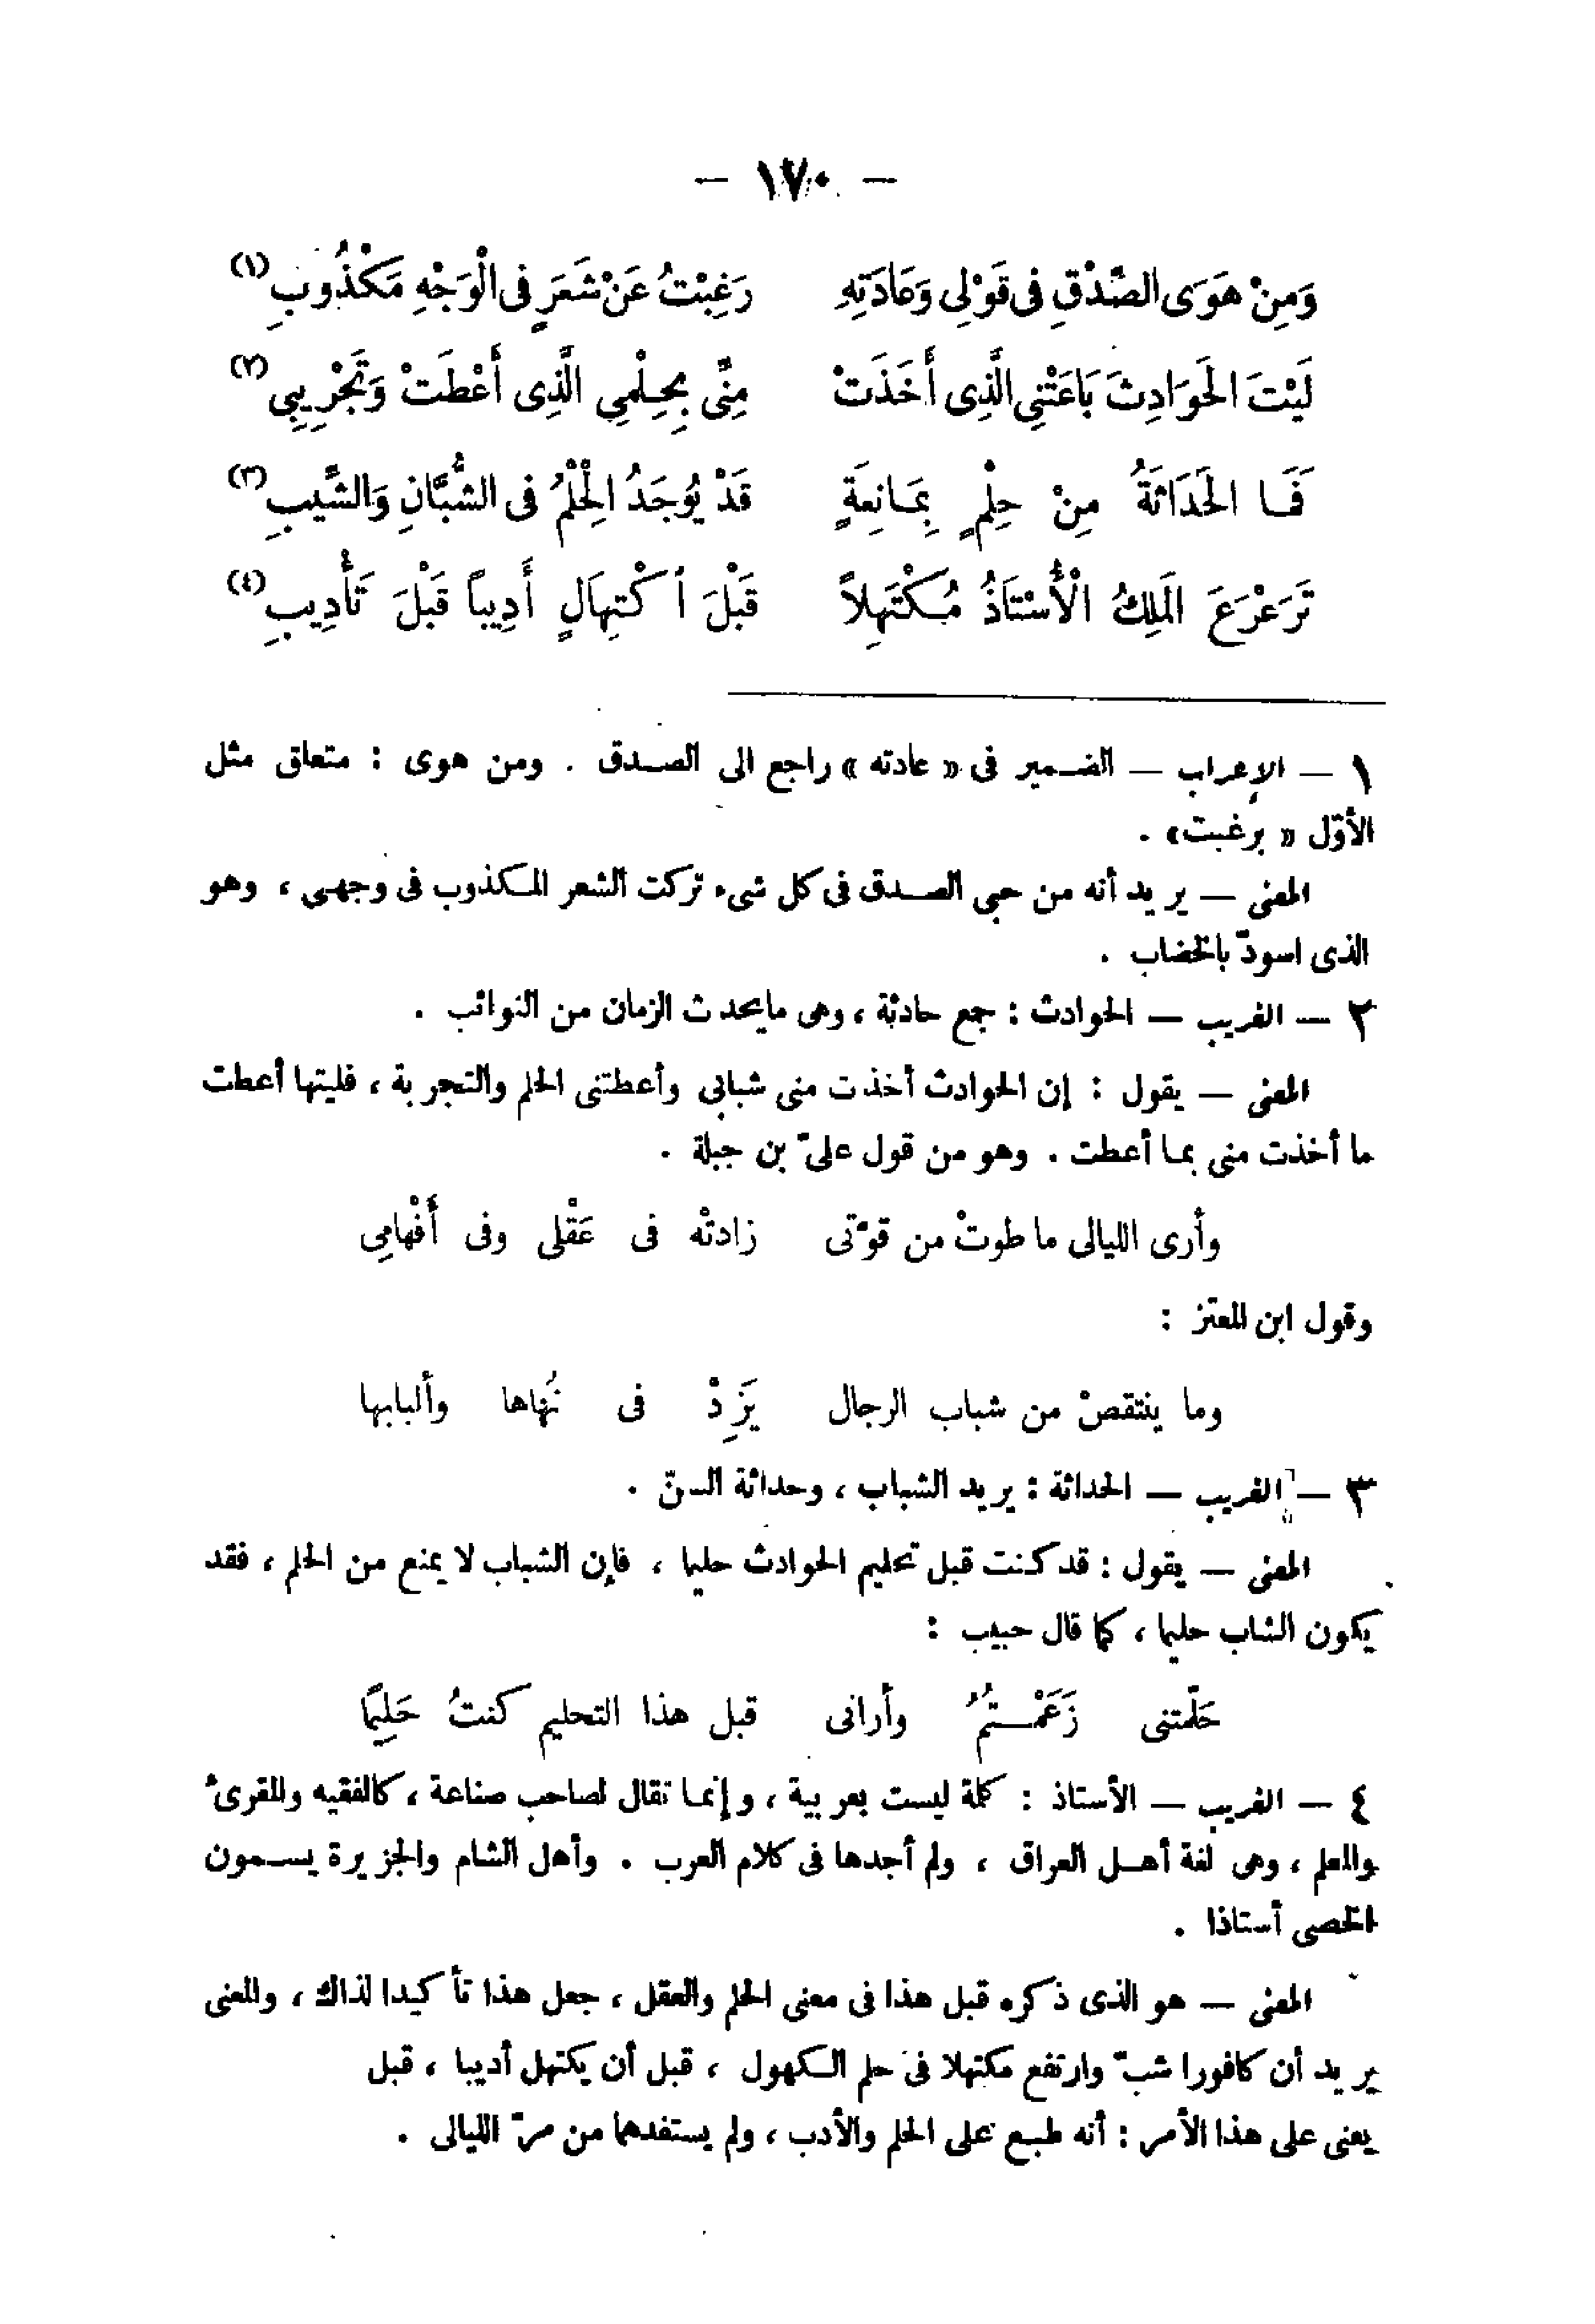 — ١٧٠ —
وَمِنْ هَوَى الصِّدْقِ فى قَوْلِى وَعَادَتِهِ رَغِبْتُ عَنْ شَعَرٍ فى الْوَجْهِ مَكْذُوبِ (١)
لَيْتَ الحَوَادِثَ بَاعَتْنِى الَّذِى أَخَذَتْ مِنِّى بِحِلْمِى الَّذِى أَعْطَتْ وَتَجْرِيبِى (٢)
فَمَا الحَدَاثَةُ مِنْ حِلْمٍ بِمَانِعَةٍ قَدْ يُوجَدُ الْحِلْمُ فى الشُّبَّانِ وَالشِّيبِ (٣)
تَرَعْرَعَ المَلِكُ الْأُسْتَاذُ مُكْتَهِلاً قَبْلَ ٱكْتِهَالٍ أَدِيباً قَبْلَ تَأْدِيبِ (٤)
١ — الإعراب — الضمير فى « عادته » راجع الى الصدق . ومن هوى : متعلق مثل
الأوّل « برغبت» .
المعنى — يريد أنه من حبى الصدق فى كل شىء تركت الشعر المكذوب فى وجهى ، وهو
الذى اسودّ بالخضاب .
٢ — الغريب — الحوادث : جمع حادثة ، وهى مايحدث الزمان من النوائب .
المعنى — يقول : إن الحوادث أخذت منى شبابى وأعطتنى الحلم والتجربة ، فليتها أعطت
ما أخذت منى بما أعطت . وهو من قول علىّ بن جبلة .
وأرى الليالى ما طوتْ من قوّتى زادتْه فى عَقْلى وفى أَفْهامِى
وقول ابن المعتز :
وما ينتقصْ من شباب الرجال يَزِدْ فى نُهاها وألبابها
٣ — الغريب — الحداثة : يريد الشباب ، وحداثة السنّ .
المعنى — يقول : قد كنت قبل تحليم الحوادث حليما ، فإن الشباب لا يمنع من الحلم ، فقد
يكون الشاب حليما ، كما قال حبيب :
حَلّمتنى زَعَمْتُمُ وأرانى قبل هذا التحليم كنتُ حَلِيمًا
٤ — الغريب — الأستاذ : كلمة ليست بعربية ، وإنما تقال لصاحب صناعة ، كالفقيه والمقرئ
والمعلم ، وهى لغة أهل العراق ، ولم أجدها فى كلام العرب . وأهل الشام والجزيرة يسمون
الخصى أستاذا .
المعنى — هو الذى ذكره قبل هذا فى معنى الحلم والعقل ، جعل هذا تأكيدا لذاك ، والمعنى
يريد أن كافورا شبّ وارتفع مكتهلا فى حلم الكهول ، قبل أن يكتهل أديبا ، قبل
يعنى على هذا الأمر : أنه طبع على الحلم والأدب ، ولم يستفدهما من مرّ الليالى .